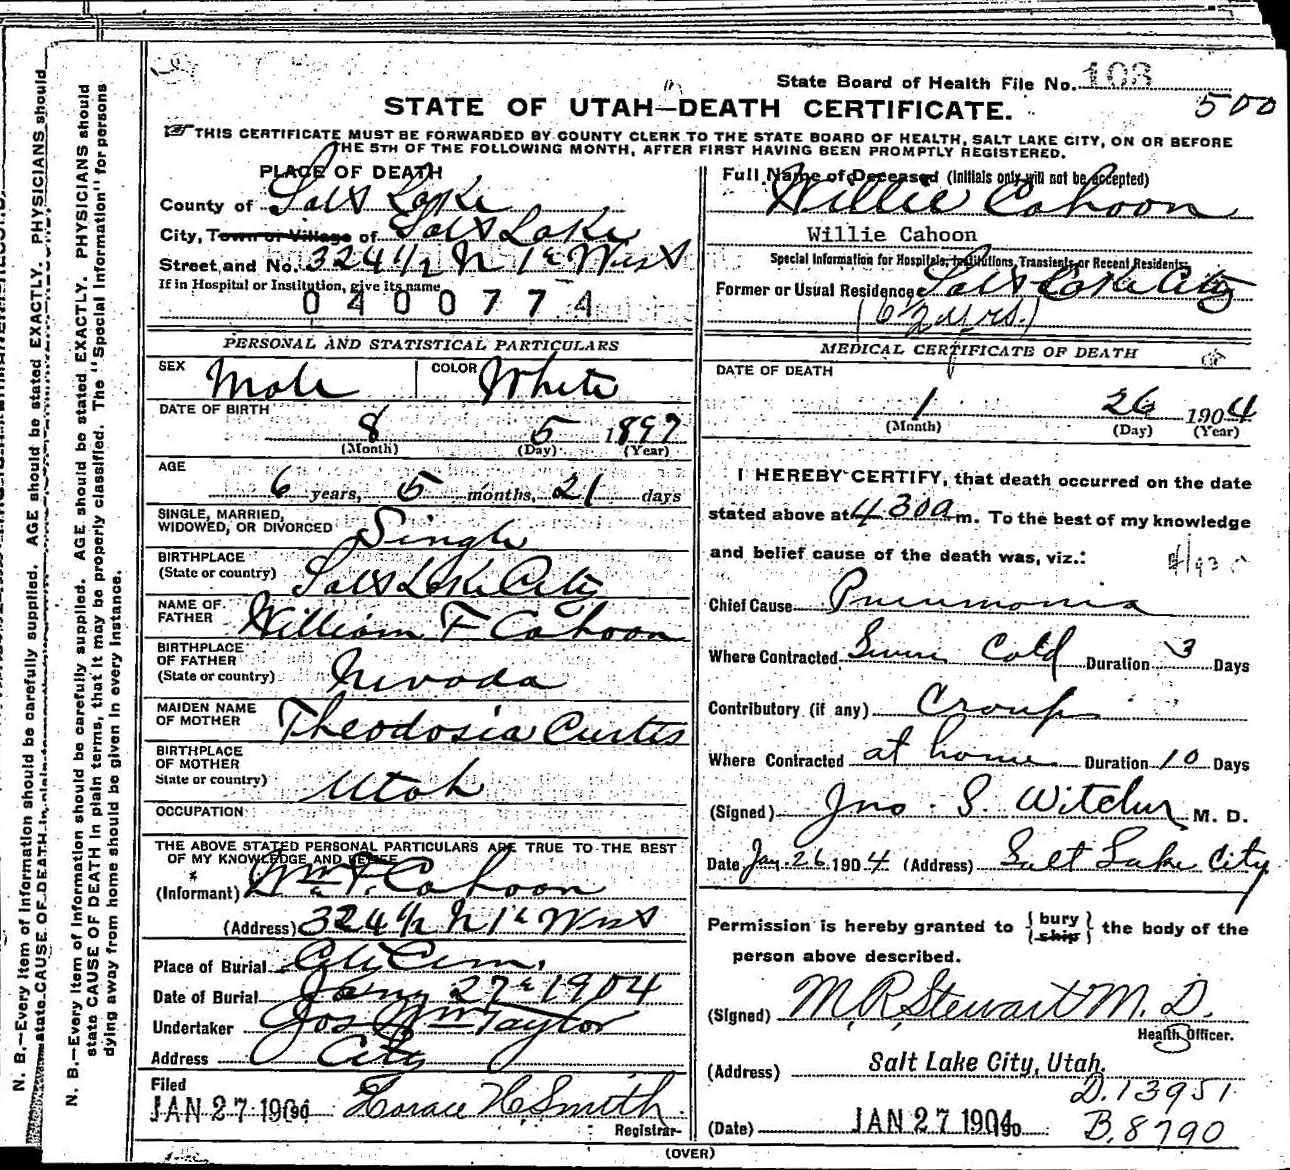 State Board of Health File No. 103
500
STATE OF UTAH—DEATH CERTIFICATE.
THIS CERTIFICATE MUST BE FORWARDED BY COUNTY CLERK TO THE STATE BOARD OF HEALTH, SALT LAKE CITY, ON OR BEFORE
THE 5TH OF THE FOLLOWING MONTH, AFTER FIRST HAVING BEEN PROMPTLY REGISTERED.
PLACE OF DEATH
County of Salt Lake
City, Town or Village of Salt Lake
Street and No. 324 1/2 N 1st West
If in Hospital or Institution, give its name
0400774
PERSONAL AND STATISTICAL PARTICULARS
SEX Male COLOR White
DATE OF BIRTH
8 5 1897
(Month) (Day) (Year)
AGE
6 years, 5 months, 21 days
SINGLE, MARRIED,
WIDOWED, OR DIVORCED Single
BIRTHPLACE
(State or country) Salt Lake City
NAME OF
FATHER William F Cahoon
BIRTHPLACE
OF FATHER
(State or country) Nevada
MAIDEN NAME
OF MOTHER Theodosia Curtis
BIRTHPLACE
OF MOTHER
State or country) Utah
OCCUPATION
THE ABOVE STATED PERSONAL PARTICULARS ARE TRUE TO THE BEST
OF MY KNOWLEDGE AND BELIEF
(Informant) Wm F. Cahoon
(Address) 324 1/2 N 1st West
Place of Burial City Cem.
Date of Burial Jany 27th 1904
Undertaker Jos Wm Taylor
Address City
Filed
JAN 27 1904 Horace H Smith
Registrar
Full Name of Deceased (Initials only will not be accepted)
Willie Cahoon
Willie Cahoon
Special Information for Hospitals, Institutions, Transients or Recent Residents.
Former or Usual Residence Salt Lake City
(6 1/2 yrs.)
MEDICAL CERTIFICATE OF DEATH
DATE OF DEATH
1 26 1904
(Month) (Day) (Year)
I HEREBY CERTIFY, that death occurred on the date
stated above at 4 30 a m. To the best of my knowledge
and belief cause of the death was, viz.:
Chief Cause Pneumonia
Where Contracted Severe Cold Duration 3 Days
Contributory (if any) Croup
Where Contracted at home Duration 10 Days
(Signed) Jno. S. Witcher M. D.
Date Jan. 26 1904 (Address) Salt Lake City
Permission is hereby granted to { bury ship } the body of the
person above described.
(Signed) M. R. Stewart M. D.
Health Officer.
(Address) Salt Lake City, Utah.
D. 13951
(Date) JAN 27 1904 B. 8790
(OVER)
N. B.—Every item of information should be carefully supplied. AGE should be stated EXACTLY. PHYSICIANS should
state CAUSE OF DEATH in plain terms, that it may be properly classified. The "Special Information" for persons
dying away from home should be given in every instance.
N. B.—Every item of information should be carefully supplied. AGE should be stated EXACTLY. PHYSICIANS should
state CAUSE OF DEATH in